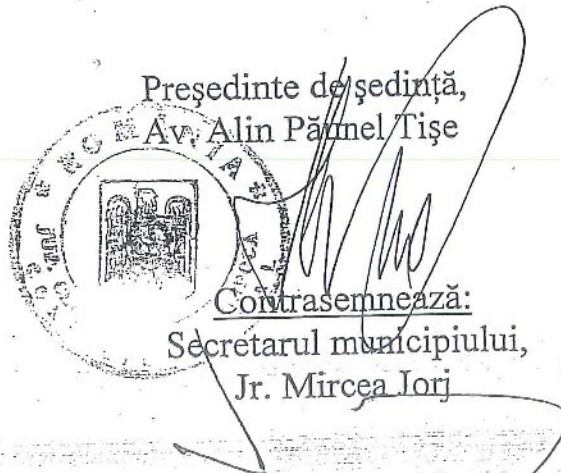 Președinte de ședință,
Av. Alin Păunel Tișe
ROMÂNIA
Contrasemnează:
Secretarul municipiului,
Jr. Mircea Jorj